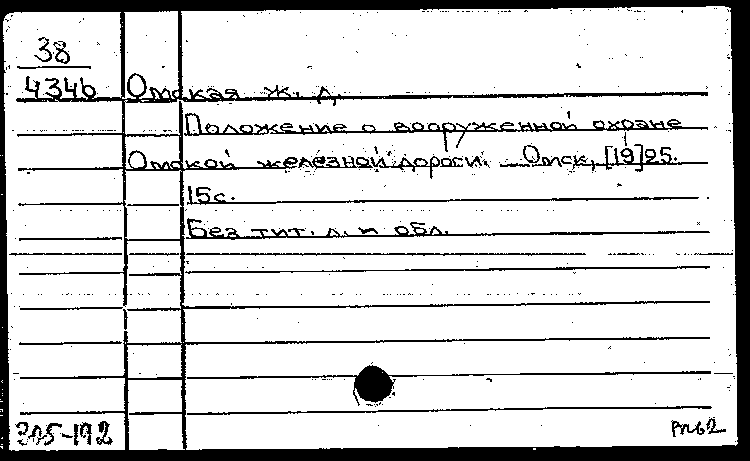 38
434b Омская ж. д.
Положение о вооруженной охране
Омской железной дороги. Омск, [19]25.
15с.
Без тит. л. и обл.
305-192